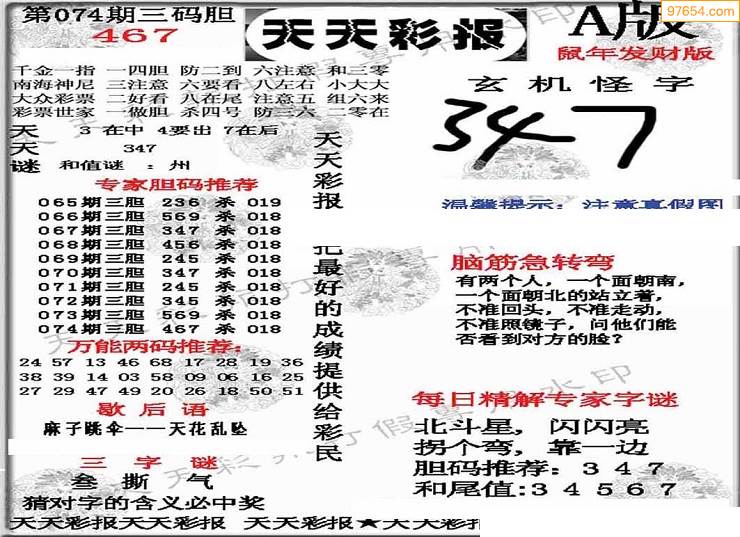 97654.com
第074期三码胆
467
天天彩报
A版
鼠年发财版
千金一指 一四胆 防二到 六注意 和三零
南海神尼 三注意 六要看 八左右 小大大
大众彩票 二好看 八在尾 注意五 组六来
彩票世家 一做胆 杀四号 防三六 二零在
天 3 在中 4要出 7在后
天 347
谜 和值谜 : 州
玄机怪字
347
专家胆码推荐
065期三胆 236 杀 019
066期三胆 569 杀 018
067期三胆 347 杀 018
068期三胆 456 杀 018
069期三胆 245 杀 018
070期三胆 347 杀 018
071期三胆 245 杀 018
072期三胆 345 杀 018
073期三胆 569 杀 018
074期三胆 467 杀 018
万能两码推荐:
24 57 13 46 68 17 28 19 36
38 39 14 03 58 09 06 16 25
27 29 47 49 20 26 18 50 51
歇后语
麻子跳伞——天花乱坠
三字谜
叁撕气
猜对字的含义必中奖
天天彩报 把最好的成绩提供给彩民
温馨提示: 注意真假图
脑筋急转弯
有两个人, 一个面朝南,
一个面朝北的站立着,
不准回头, 不准走动,
不准照镜子, 问他们能
否看到对方的脸?
每日精解专家字谜
北斗星, 闪闪亮
拐个弯, 靠一边
胆码推荐: 3 4 7
和尾值:3 4 5 6 7
天天彩报天天彩报 天天彩报★天天彩报